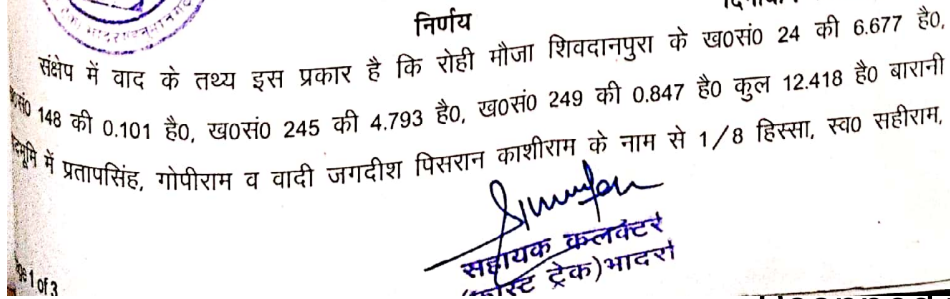 निर्णय
संक्षेप में वाद के तथ्य इस प्रकार है कि रोही मौजा शिवदानपुरा के ख0सं0 24 की 6.677 है0,
148 की 0.101 है0, ख0सं0 245 की 4.793 है0, ख0सं0 249 की 0.847 है0 कुल 12.418 है0 बारानी
में प्रतापसिंह, गोपीराम व वादी जगदीश पिसरान काशीराम के नाम से 1/8 हिस्सा, स्व0 सहीराम,
सहायक कलक्टर
ट्रेक)भादरा
1 of 3